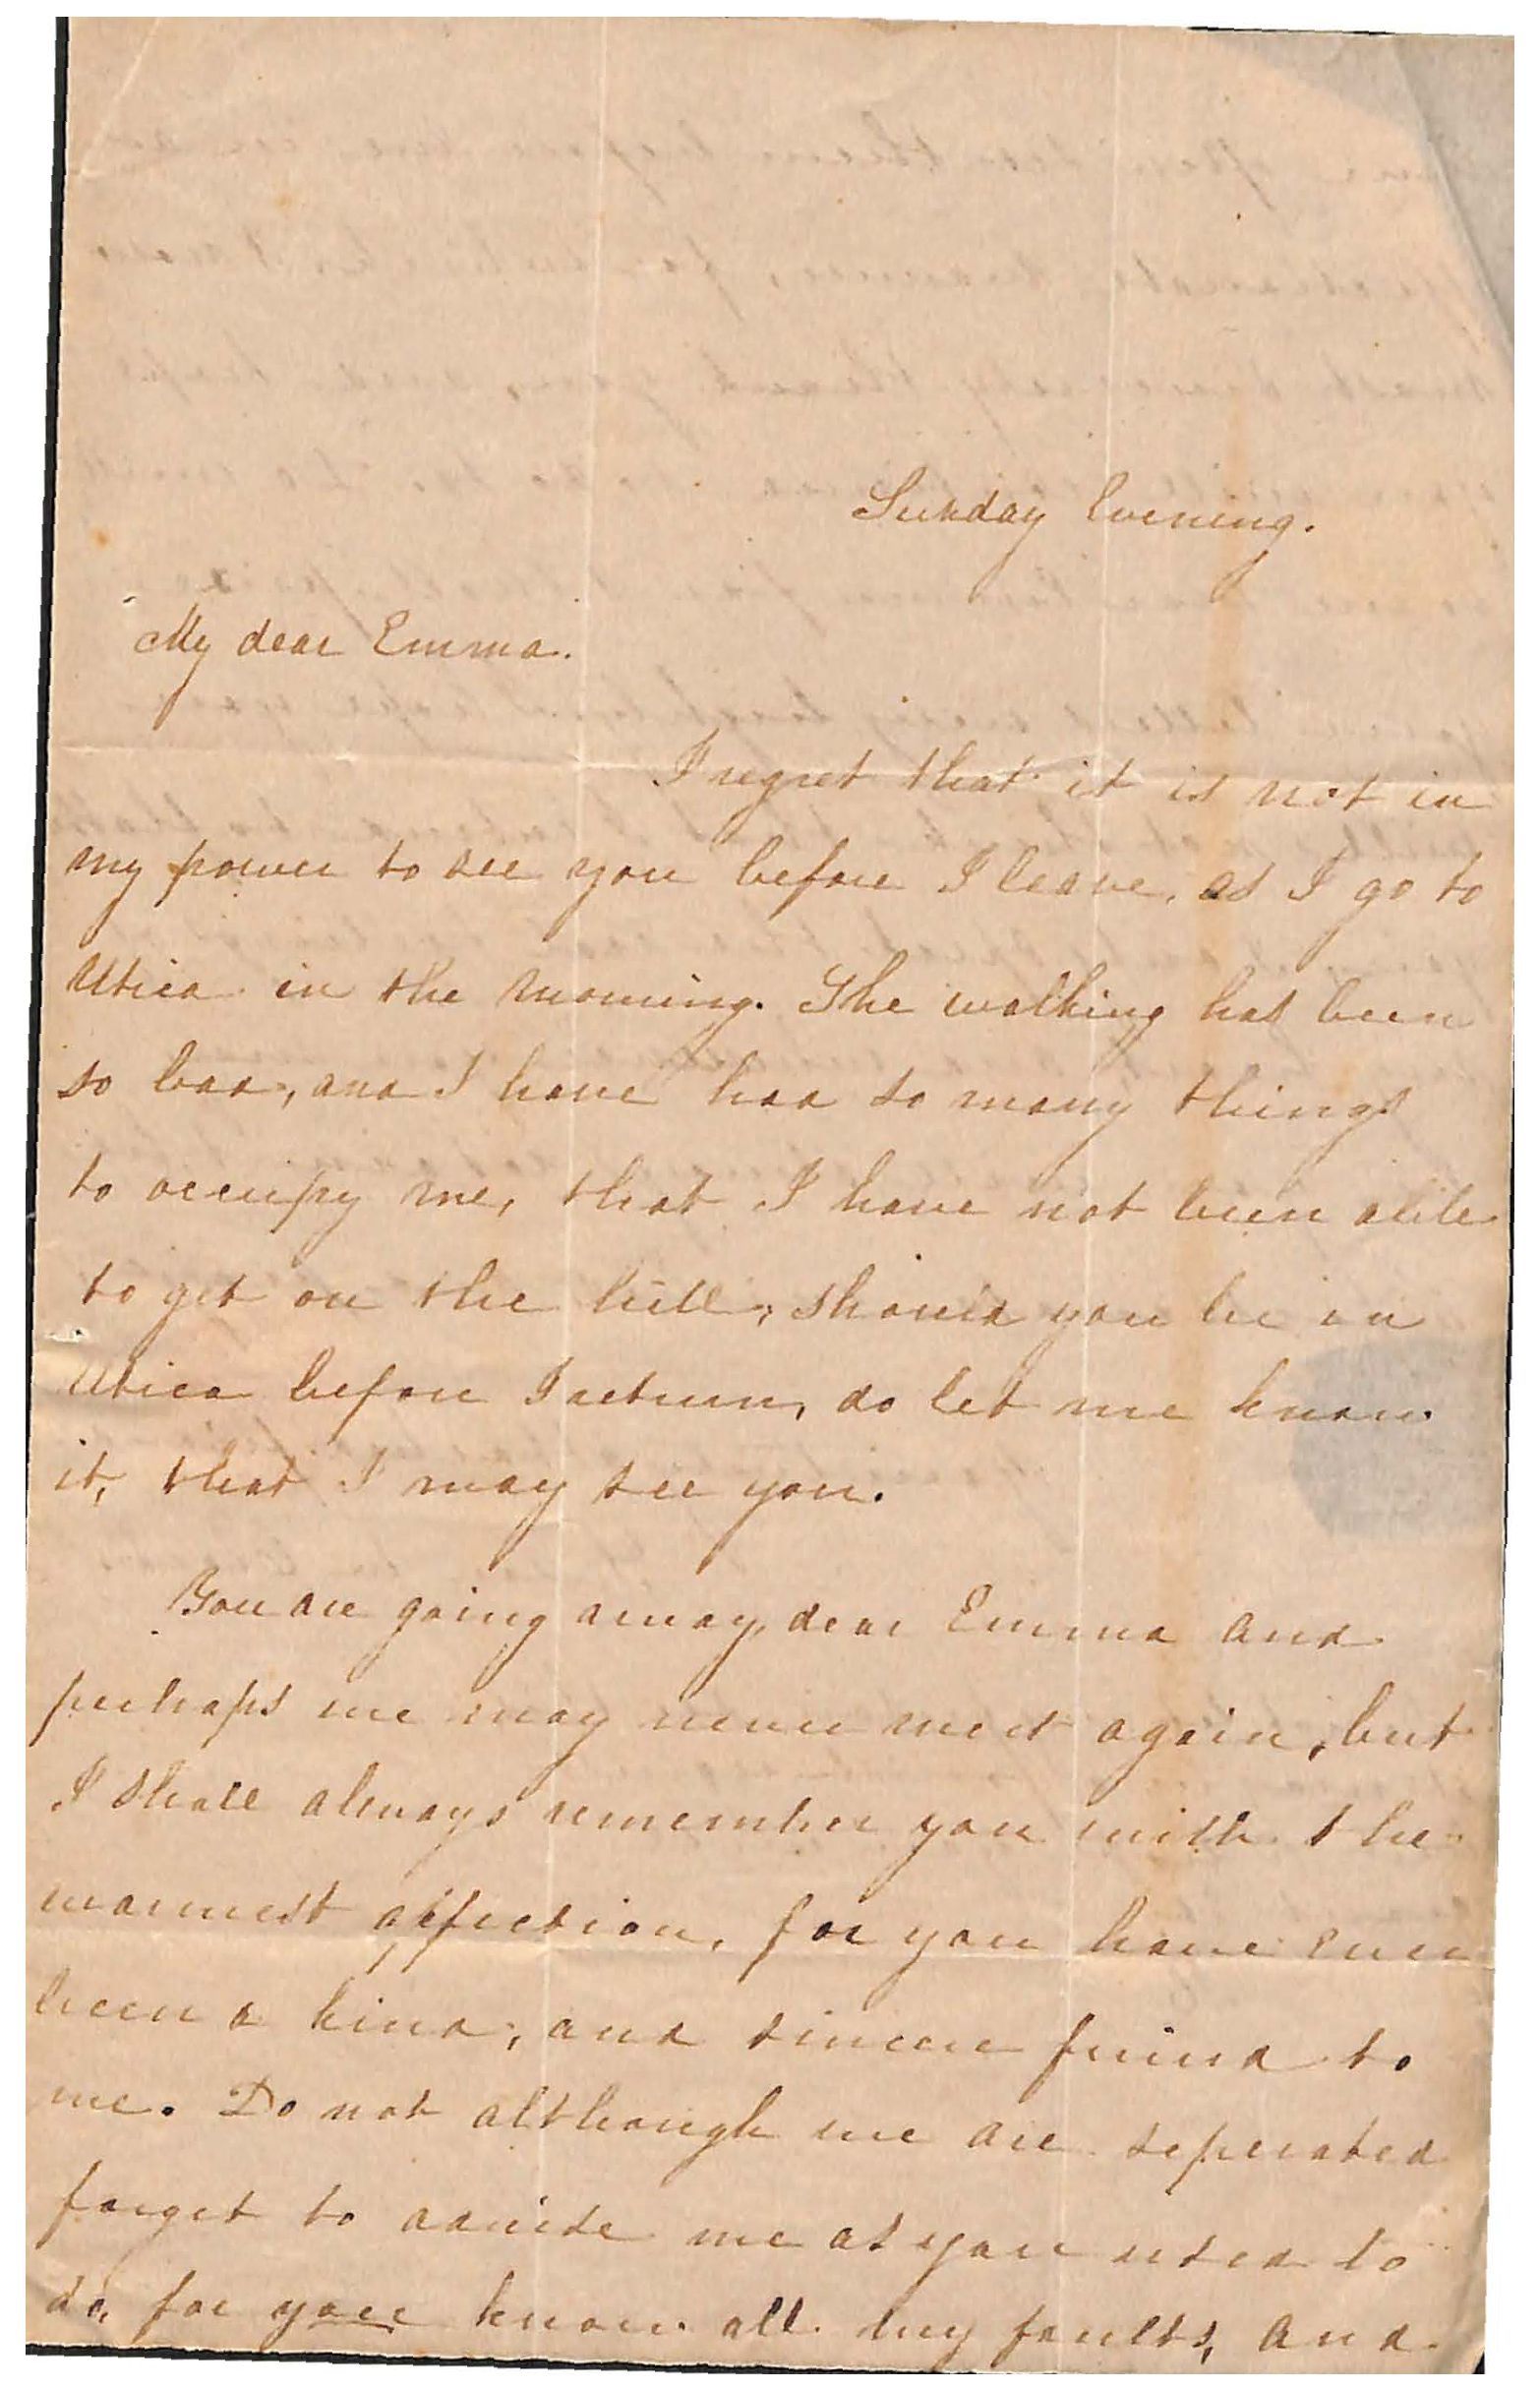 Sunday Evening.
My dear Emma.
I regret that it is not in
my power to see you before I leave, as I go to
Utica in the morning. The walking has been
so bad, and I have had so many things
to occupy me, that I have not been able
to get on the hill, should you be in
Utica before I return, do let me know
it, that I may see you.
You are going away, dear Emma and
perhaps we may never meet again, but
I shall always remember you with the
warmest affection, for you have ever
been a kind, and sincere friend to
me. Do not although we are seperated
forget to advise me as you used to
do, for you know all my faults, and